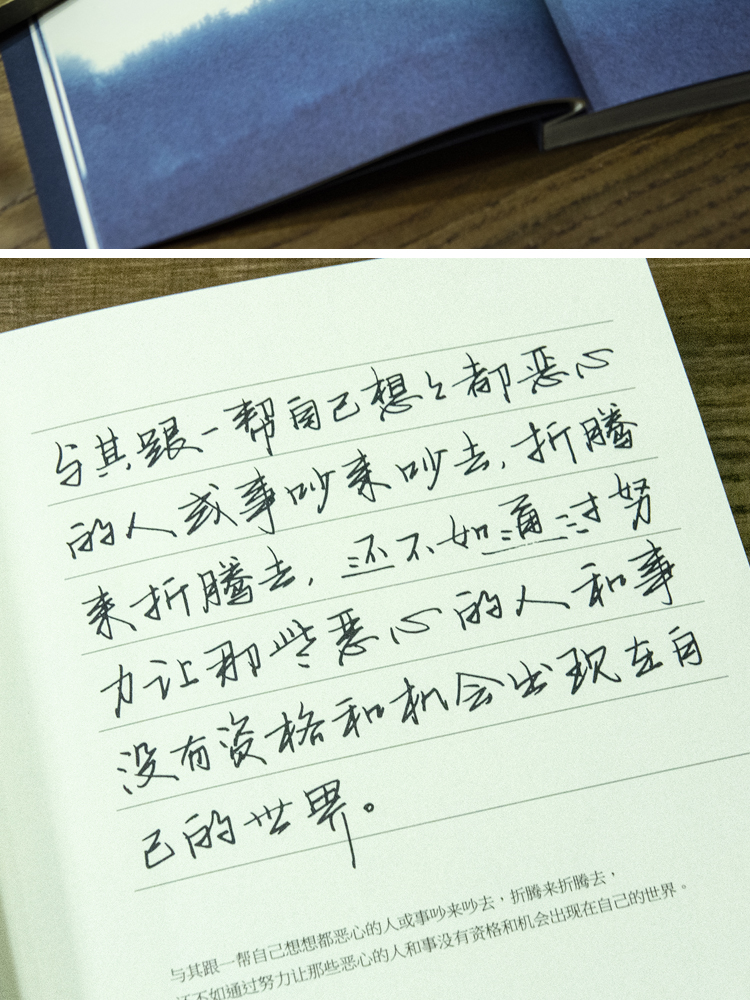 与其跟一帮自己想々都恶心
的人或事吵来吵去,折腾
来折腾去,还不如通过努
力让那些恶心的人和事
没有资格和机会出现在自
己的世界。
与其跟一帮自己想想都恶心的人或事吵来吵去，折腾来折腾去，
还不如通过努力让那些恶心的人和事没有资格和机会出现在自己的世界。